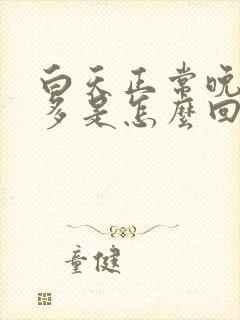 白天正常晚
多是怎麼回
童健